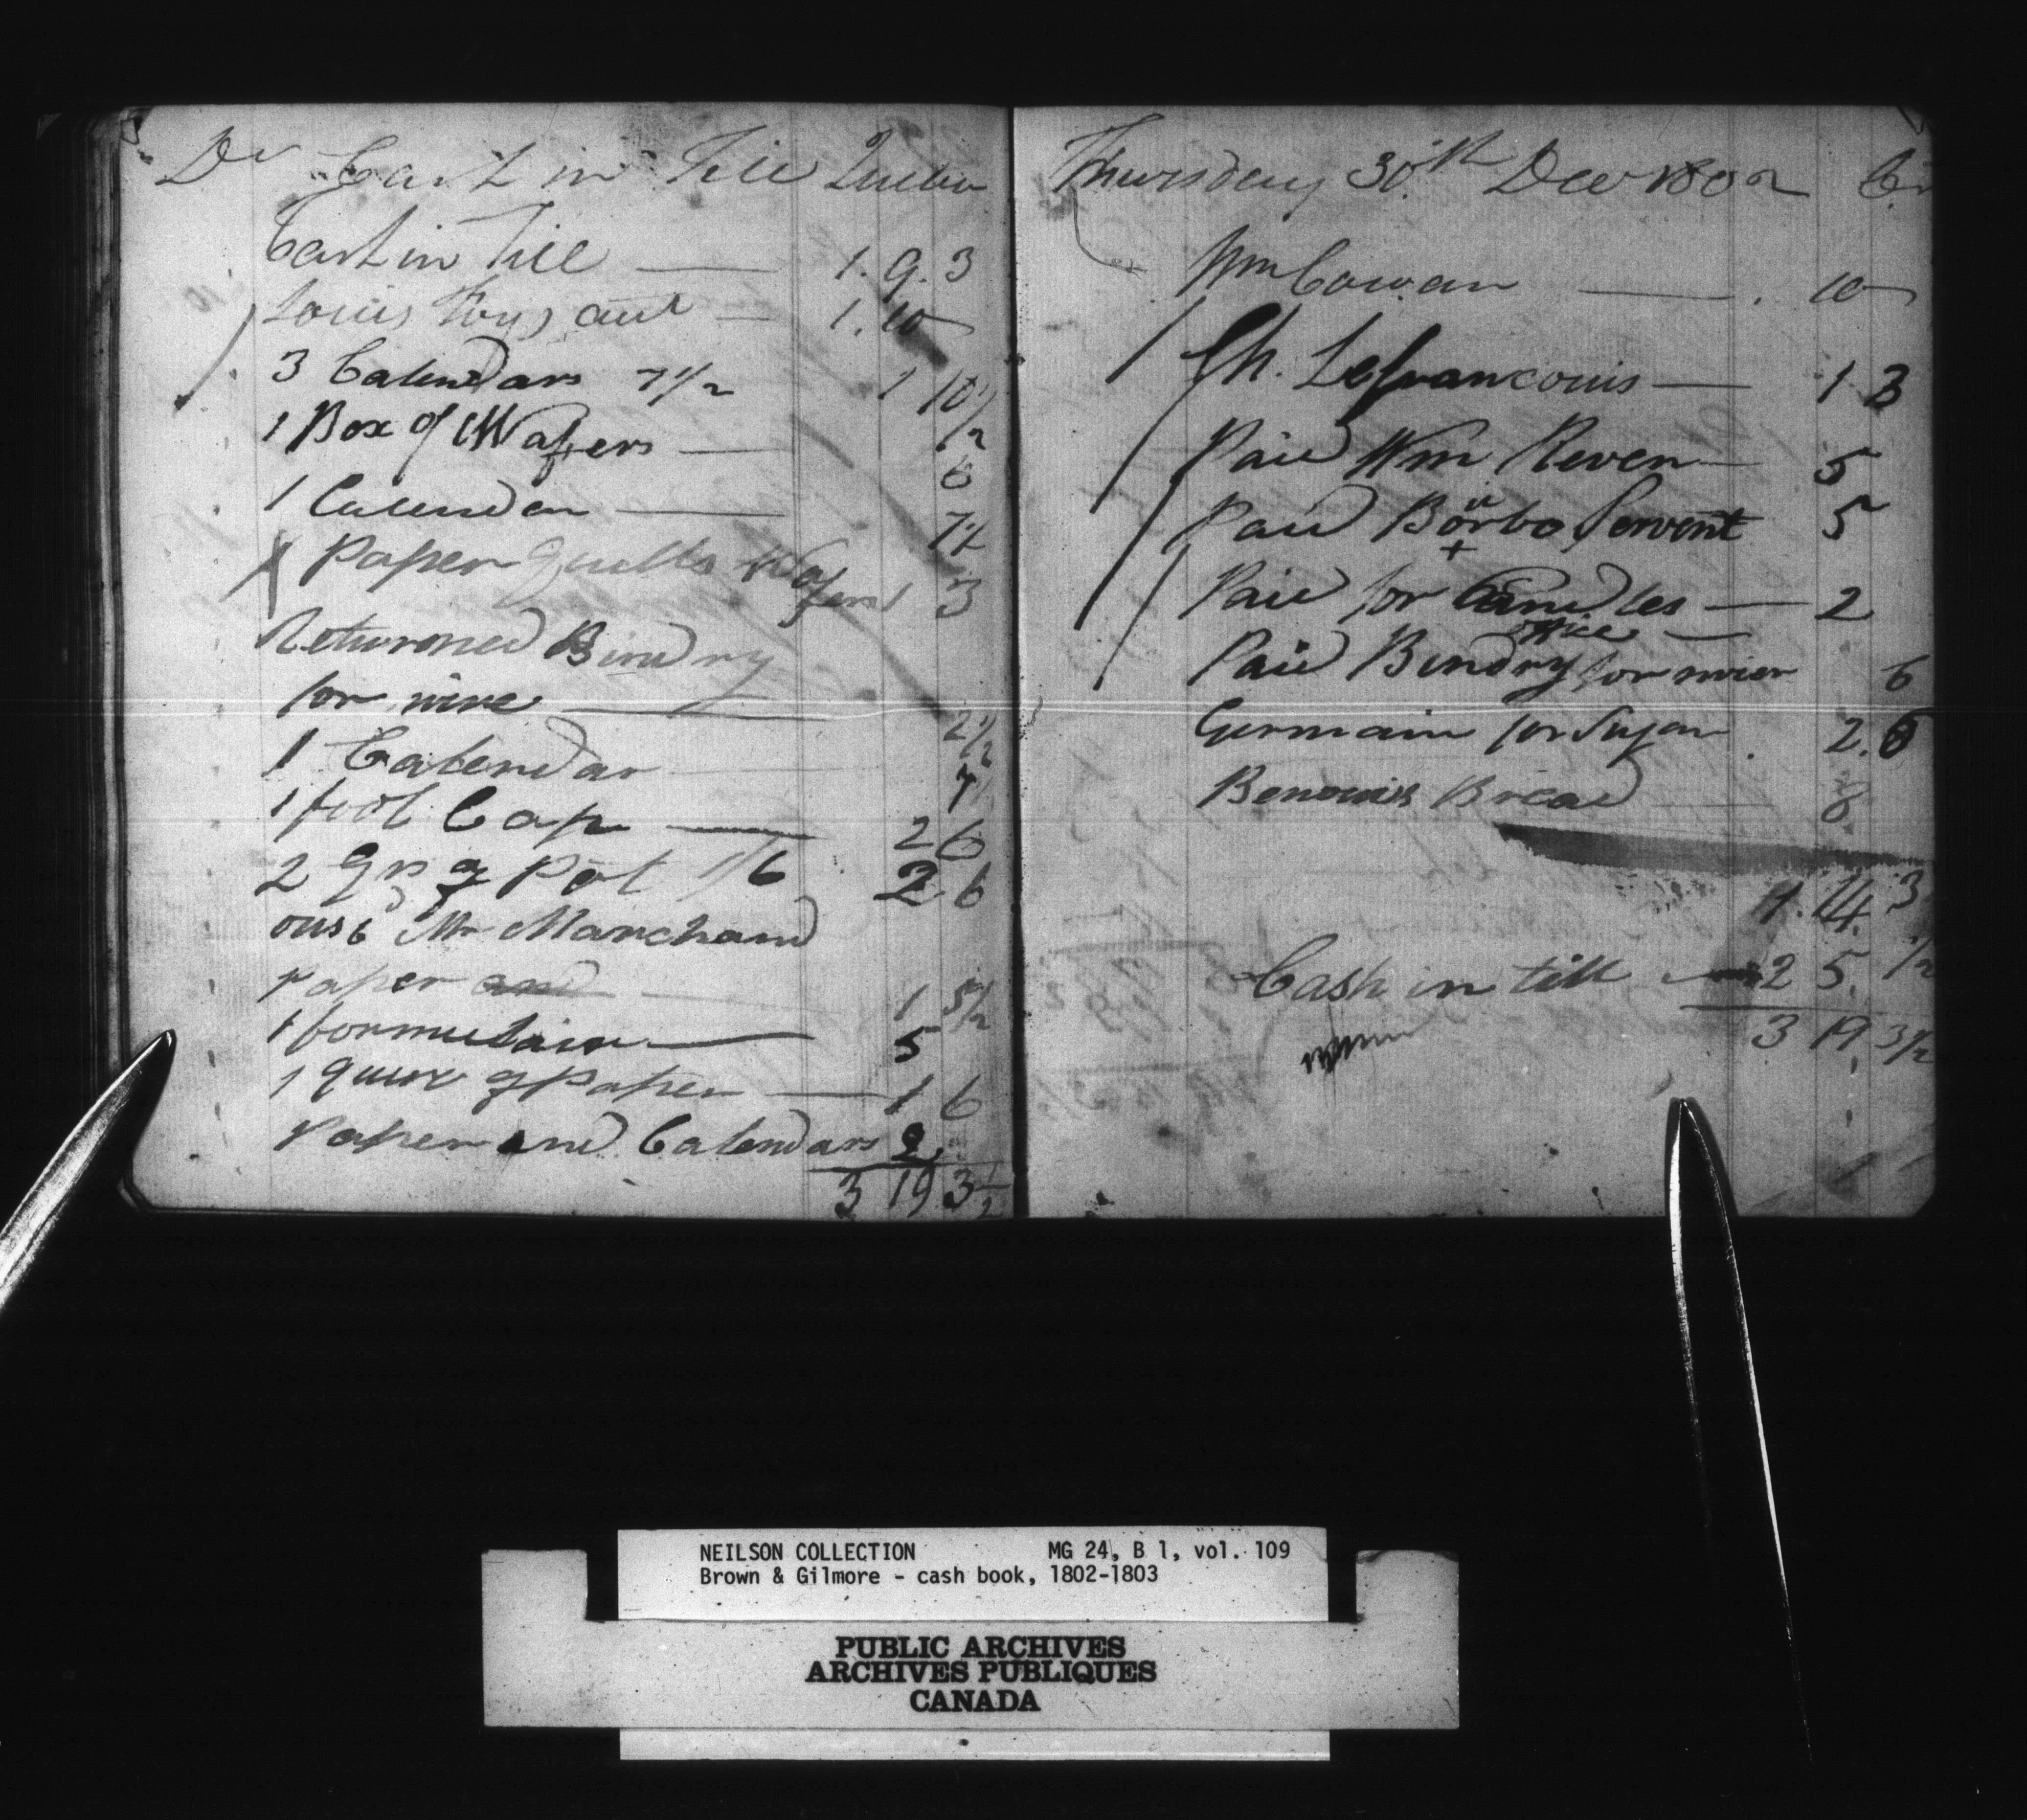 Dr Cash in Till Quebec
Cash in Till — 1. 9. 3
Louis — 1. 10
3 Calendars 7 1/2 1 10 1/2
1 Box of Wafers — 6
1 Calendar — 7 1/2
Paper Quills Wafers 1 3
Returned Bindry
for wire — 2 1/2
1 Calendar 7 1/2
1 fool Cap — 2 6
2 qrs of Pot 1/6 2. 6
Mr Marchand
paper and — 1 5 1/2
1 formulair — 5
1 quire of Paper — 1 6
Paper and Calendars 2
3 19 3 1/2
Thursday 30th Dec 1802 Cr
Wm Cowan — 10
Ch. Lefrancouis — 1 3
Paid Wm Reven — 5
Paid Servent 5
Paid for Candles — 2
Paid Bindry for 6
Germain for Sugar 2. 6
Bread 8
1. 14. 3
Cash in till — 2 5. 1/2
3 19 3 1/2
NEILSON COLLECTION MG 24, B 1, vol. 109
Brown & Gilmore - cash book, 1802-1803
PUBLIC ARCHIVES
ARCHIVES PUBLIQUES
CANADA